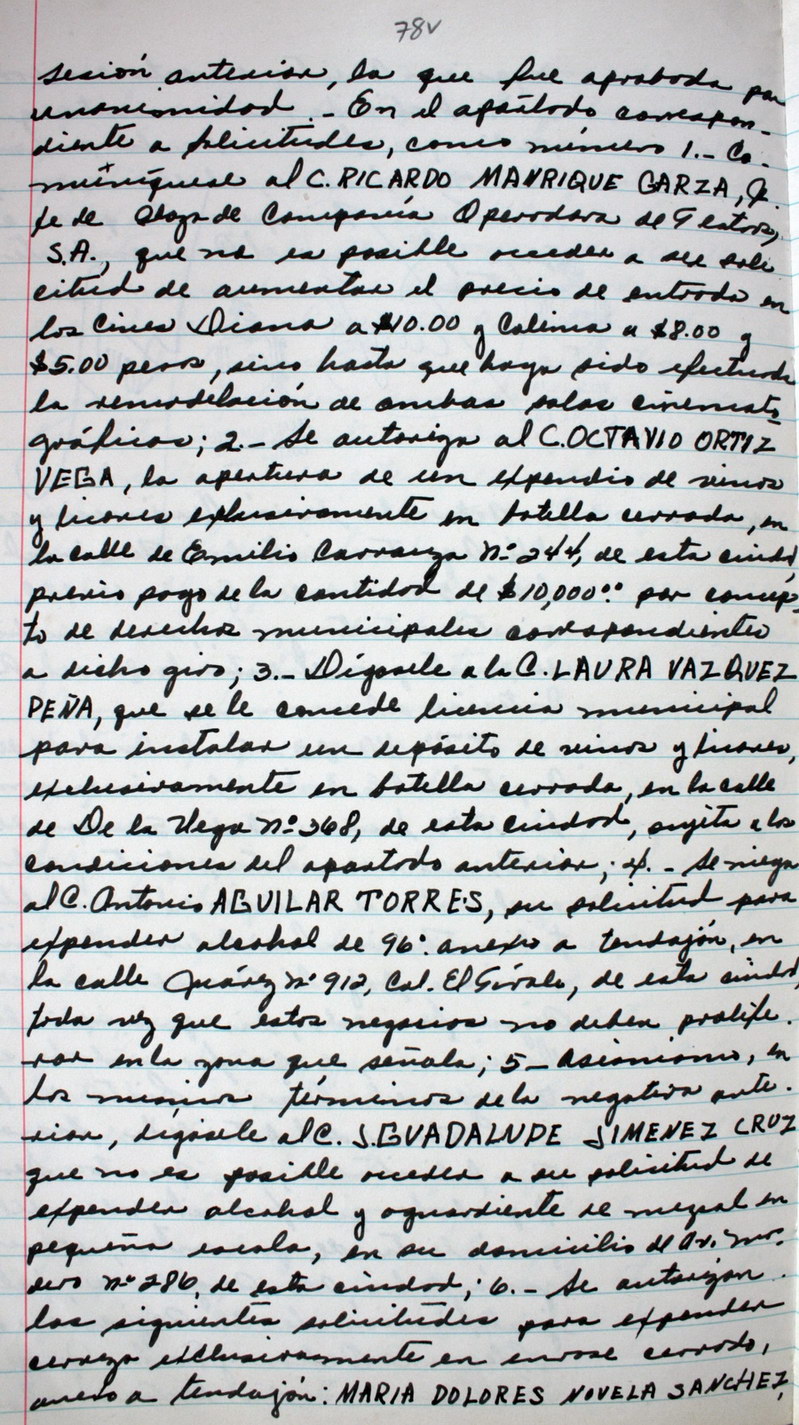 78v
sesión anterior, la que fue aprobada por
unanimidad.- En el apartado correspon-
diente a solicitudes, como número 1.- Co-
muníquese al C. RICARDO MANRIQUE GARZA, Je
fe de Plaza de Compañía Operadora de Teatros,
S.A., que no es posible acceder a su soli
citud de aumentar el precio de entrada en
los Cines Diana a $10.00 y Colima a $8.00 y
$5.00 pesos, sino hasta que haya sido efectuada
la remodelación de ambas salas cinemato
gráficas; 2.- Se autoriza al C. OCTAVIO ORTIZ
VEGA, la apertura de un expendio de vinos
y licores exclusivamente en botella cerrada, en
la calle de Emilio Carranza Nº 244, de esta ciudad,
previo pago de la cantidad de $10,000.oo por concep-
to de derechos municipales correspondientes
a dicho giro; 3.- Dígasele a la C. LAURA VAZQUEZ
PEÑA, que se le concede licencia municipal
para instalar un depósito de vinos y licores,
exclusivamente en botella cerrada, en la calle
de De la Vega Nº 368, de esta ciudad, sujeta a las
condiciones del apartado anterior; 4.- Se niega
al C. Antonio AGUILAR TORRES, su solicitud para
expender alcohol de 96º anexo a tendajón, en
la calle Juárez Nº 912, Col. El Tívoli, de esta ciudad,
toda vez que estos negocios no deben prolife-
rar en la zona que señala; 5- Asimismo, en
los mismos términos de la negativa ante-
rior, dígasele al C. J. GUADALUPE JIMENEZ CRUZ
que no es posible acceder a su solicitud de
expender alcohol y aguardiente de mezcal en
pequeña escala, en su domicilio de Av. Ma-
dero Nº 286, de esta ciudad; 6.- Se autorizan
las siguientes solicitudes para expender
cerveza exclusivamente en envase cerrado,
anexo a tendajón: MARIA DOLORES NOVELA SANCHEZ,